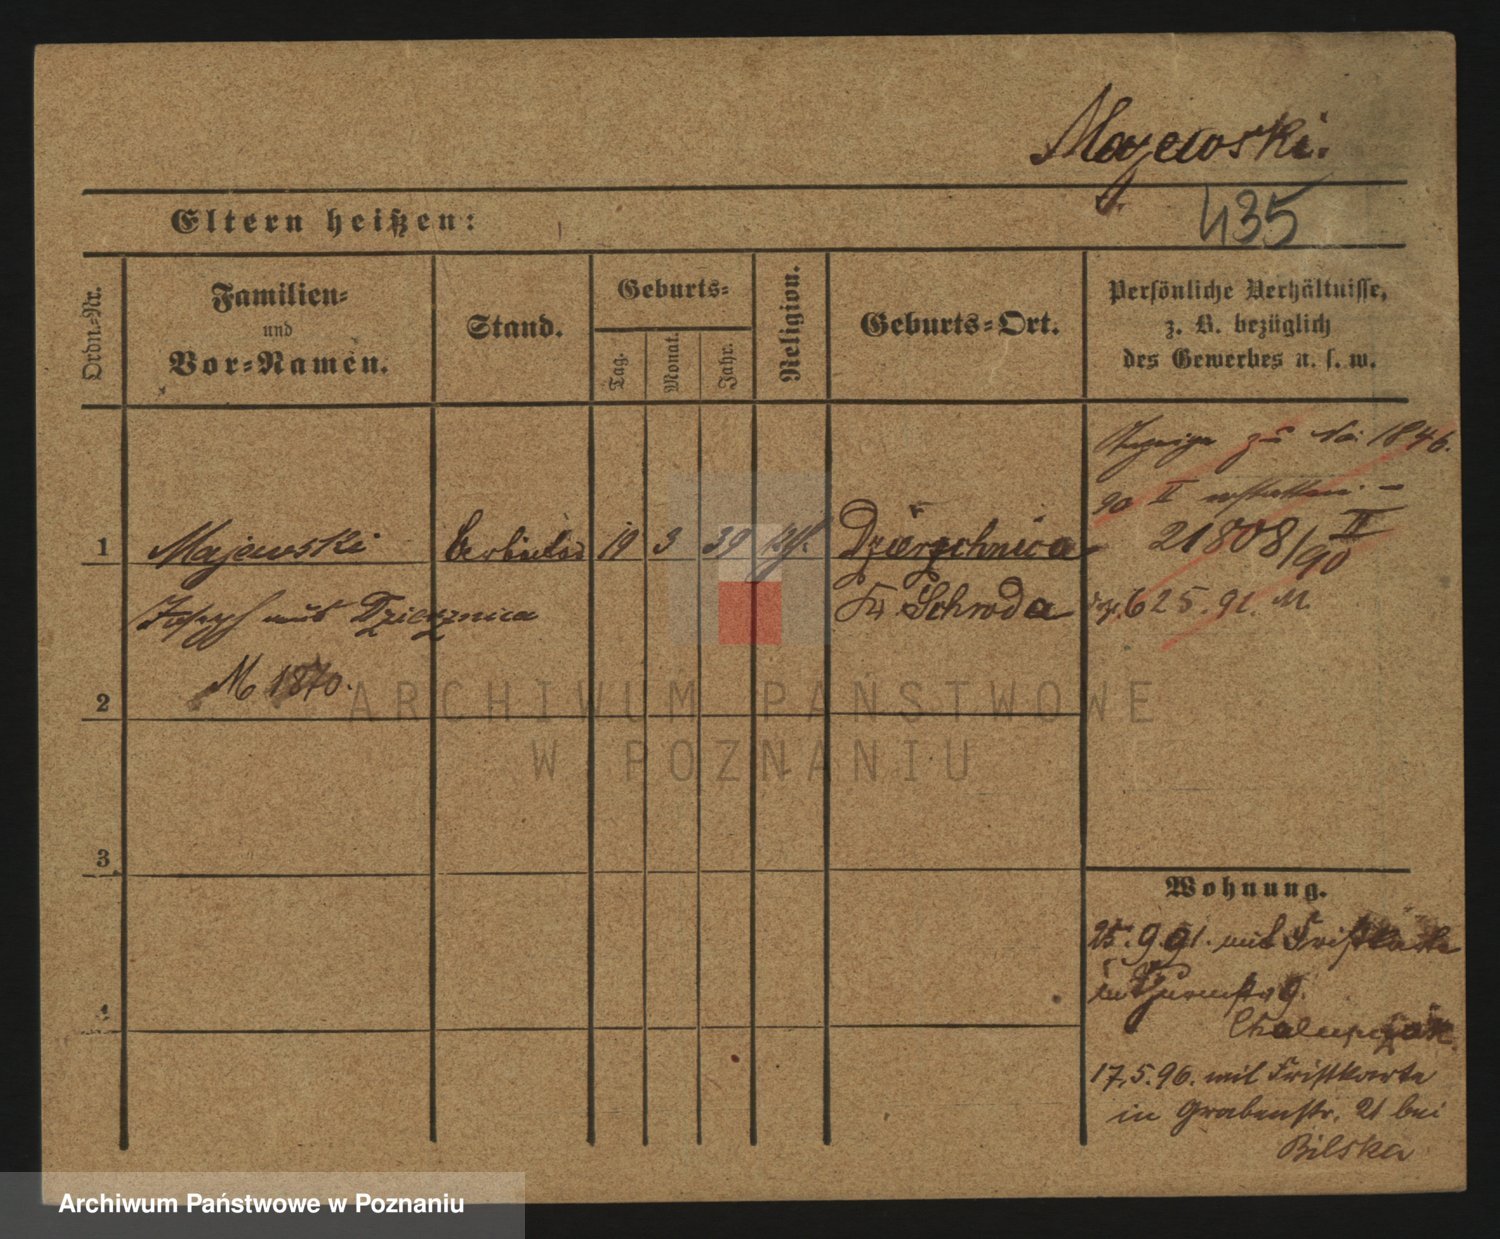 Majewski.
J.
435
Eltern heißen:
Ordn.-Nr.
Familien-
und
Vor-Namen.
Stand.
Geburts-
Tag.
Monat.
Jahr.
Religion.
Geburts-Ort.
Persönliche Verhältnisse,
z. B. bezüglich
des Gewerbes u. s. w.
Anzeige zu No. 1846.
90 II erstatten. –
21808/90 IV
625. 91. M.
1 Majewski 19 3 39 kath. Dzierzchnica
Joseph aus Dzierznica
Kr. Schroda
M 1870.
2
3
4
Wohnung.
25. 9. 91. mit Fristkarte
in Thurmstr. 9.
Chalupczak.
17. 5. 96. mit Fristkarte
in Grabenstr. 21 bei
Bilska
ARCHIWUM PAŃSTWOWE
W POZNANIU
Archiwum Państwowe w Poznaniu